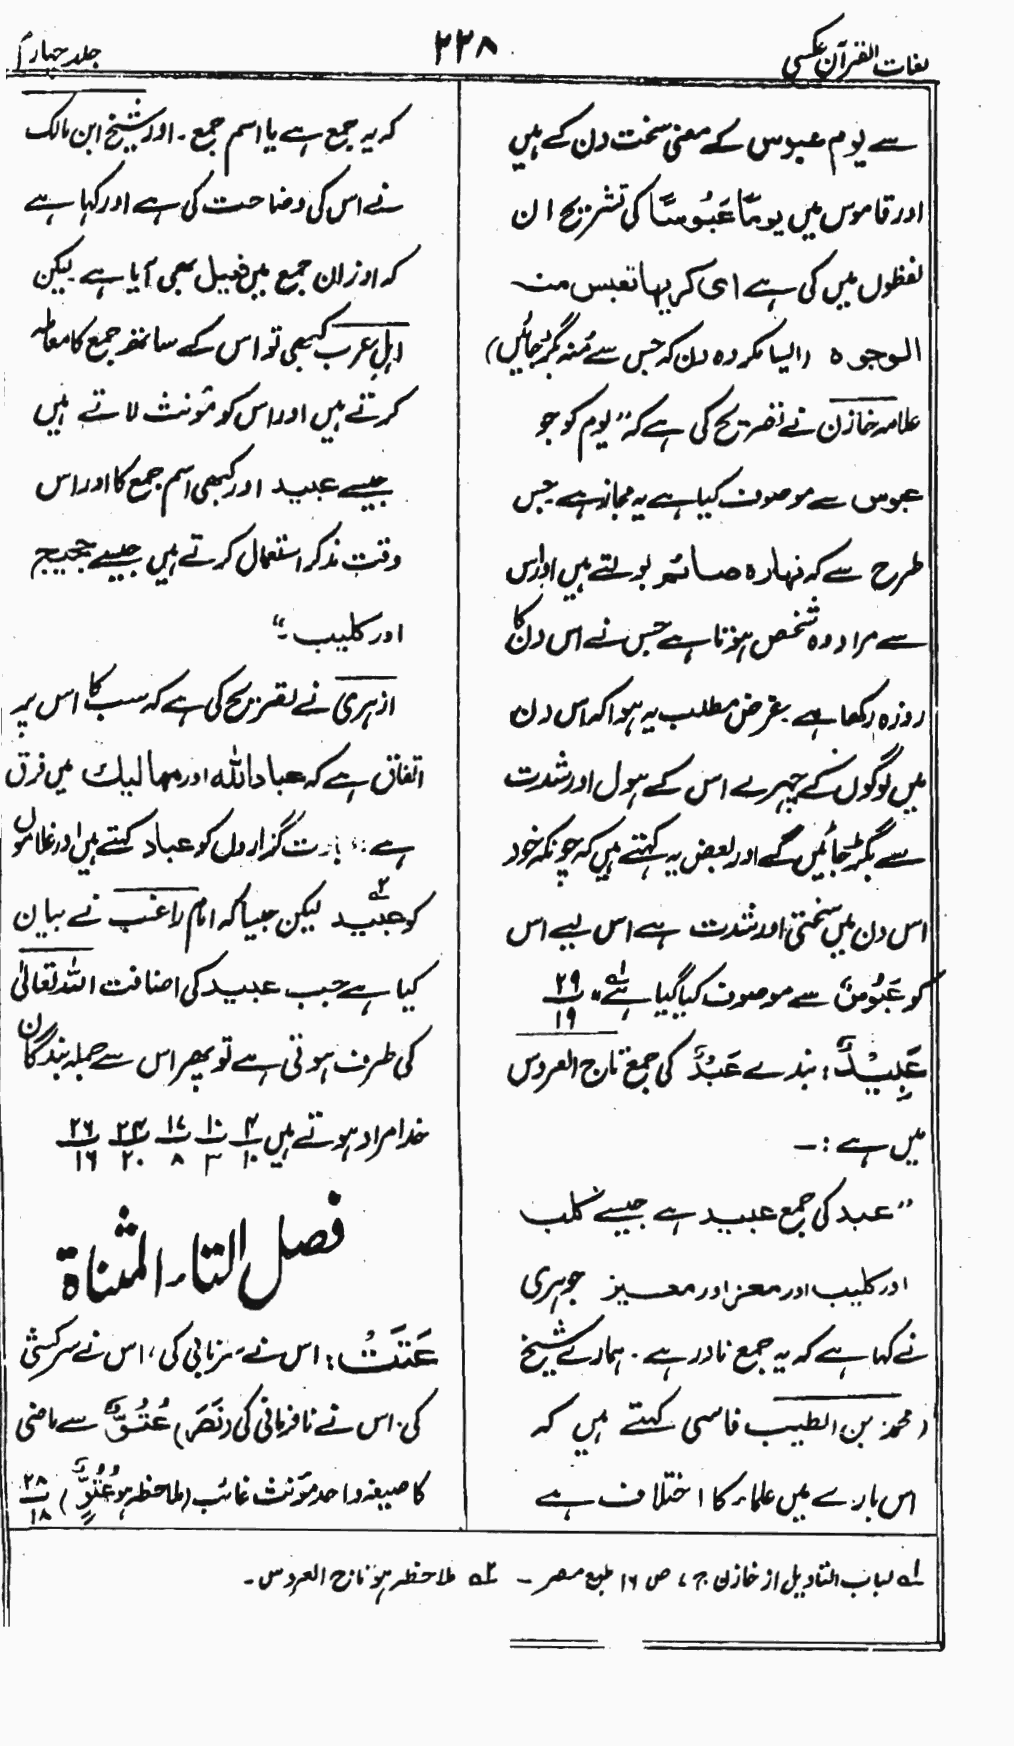 لغات القرآن عکسی
۲۲۸
جلد چہارم
سے یوم عبوس کے معنی سخت دن کے ہیں
اور قاموس میں یومًا عَبُوسًا کی تشریح ان
لفظوں میں کی ہے ای کریہا تعبس منہ
الوجوہ (ایسا مکروہ دن کہ جس سے مُنہ بگڑ جائیں)
علامہ خازن نے تصریح کی ہے کہ "یوم کو جو
عبوس سے موصوف کیا ہے یہ مجاز ہے جس
طرح سے کہ نہارہ صائم بولتے ہیں اور اس
سے مراد وہ شخص ہوتا ہے جس نے اس دن کا
روزہ رکھا ہے۔ غرض مطلب یہ ہوا کہ اس دن
میں لوگوں کے چہرے اس کے ہول اور شدت
سے بگڑ جائیں گے اور بعض یہ کہتے ہیں کہ چونکہ خود
اس دن میں سختی اور شدت ہے اس لیے اس
کو عَبُوس سے موصوف کیا گیا ہے" ۱؎ ۲۹/۱۹
عَبِیْدٌ: بندے عَبْدٌ کی جمع تاج العروس
میں ہے :۔
"عبد کی جمع عبید ہے جیسے کلب
اور کلیب اور معز اور معیز جوہری
نے کہا ہے کہ یہ جمع نادر ہے۔ ہمارے شیخ
(محمد بن الطیب فاسی کہتے ہیں کہ
اس بارے میں علماء کا اختلاف ہے
کہ یہ جمع ہے یا اسم جمع۔ اور شیخ ابن مالک
نے اس کی وضاحت کی ہے اور کہا ہے
کہ اوزان جمع میں فعیل بھی آیا ہے لیکن
اہل عرب کبھی تو اس کے ساتھ جمع کا معاملہ
کرتے ہیں اور اس کو مؤنث لاتے ہیں
جیسے عبید اور کبھی اسم جمع کا اور اس
وقت مذکر استعمال کرتے ہیں جیسے حجیج
اور کلیب۔"
ازہری نے تصریح کی ہے کہ سب کا اس پر
اتفاق ہے کہ عباد اللہ اور ممالیک میں فرق
ہے عبادت گزاروں کو عباد کہتے ہیں اور غلاموں
کو عبید ۲؎ لیکن جیسا کہ امام راغب نے بیان
کیا ہے جب عبید کی اضافت اللہ تعالیٰ
کی طرف ہوتی ہے تو پھر اس سے جملہ بندگان
خدا مراد ہوتے ہیں ۴/۱۰ ۱۰/۳ ۱۷/۸ ۲۴/۲۰ ۲۶/۱۶
فصل التاء المثناۃ
عَتَتْ: اس نے سرتابی کی، اس نے سرکشی
کی، اس نے نافرمانی کی (نَصَرَ) عُتُوٌّ سے ماضی
کا صیغہ واحد مؤنث غائب (ملاحظہ ہو عُتُوٍّ) ۲۸/۱۸
۱؎ لباب التاویل از خازن ج ۷ ص ۱۶ طبع مصر۔ ۲؎ ملاحظہ ہو تاج العروس۔